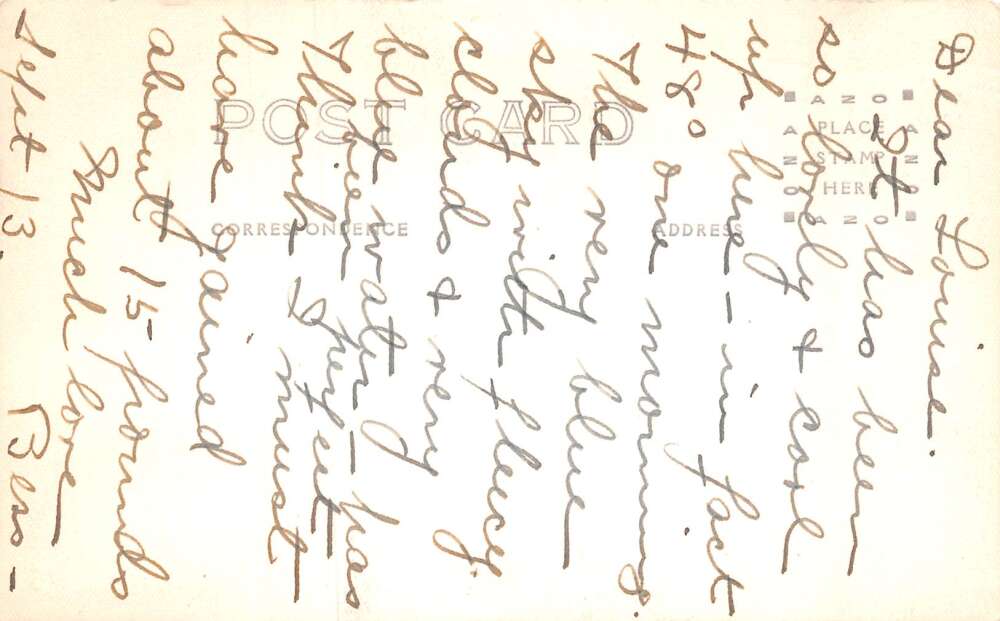 Dear Louise.
It has been
so lovely & cool
up here - in fact
48° one morning.
The very blue
sky with fleecy
clouds & very
blue water - has
been perfect -
Thanks I must
have gained
about 15 pounds
Much love
Sept 13 Bess -
POST CARD
CORRESPONDENCE
ADDRESS
AZO
PLACE
STAMP
HERE
AZO